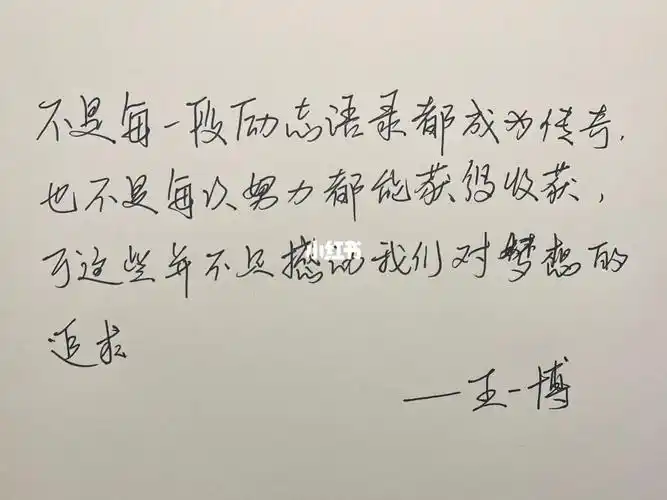 不是每一段励志语录都成为传奇，
也不是每次努力都能获得收获，
可这些并不足撼动我们对梦想的
追求
——王一博
小红书